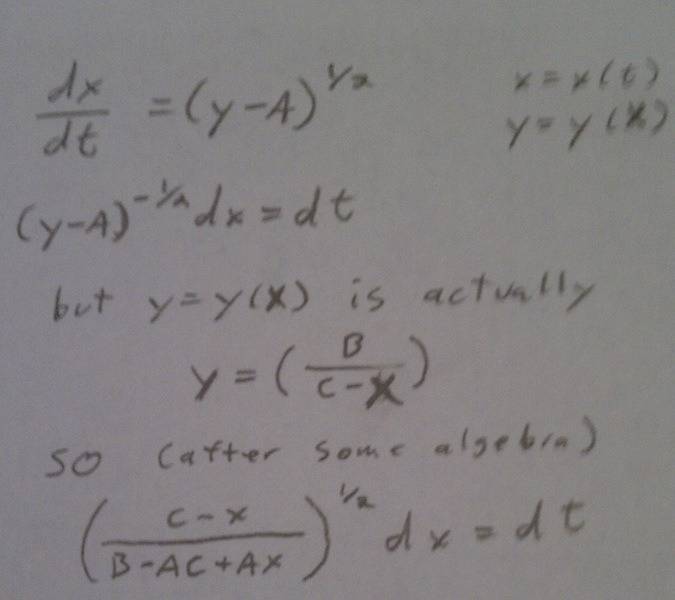 dx/dt = (y-A)^1/2    x = x(t)
y = y(x)
(y-A)^-1/2 dx = dt
but y = y(x) is actually
y = (B/(C-x))
so (after some algebra)
((C-x)/(B-AC+Ax))^1/2 dx = dt